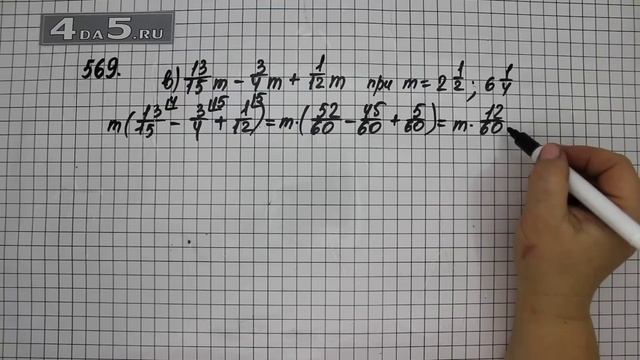 4DA5.RU
569.
в) 13/15 m - 3/4 m + 1/12 m при m = 2 1/2; 6 1/4
m(13/15 ^4 - 3/4 ^15 + 1/12 ^5) = m·(52/60 - 45/60 + 5/60) = m·12/60